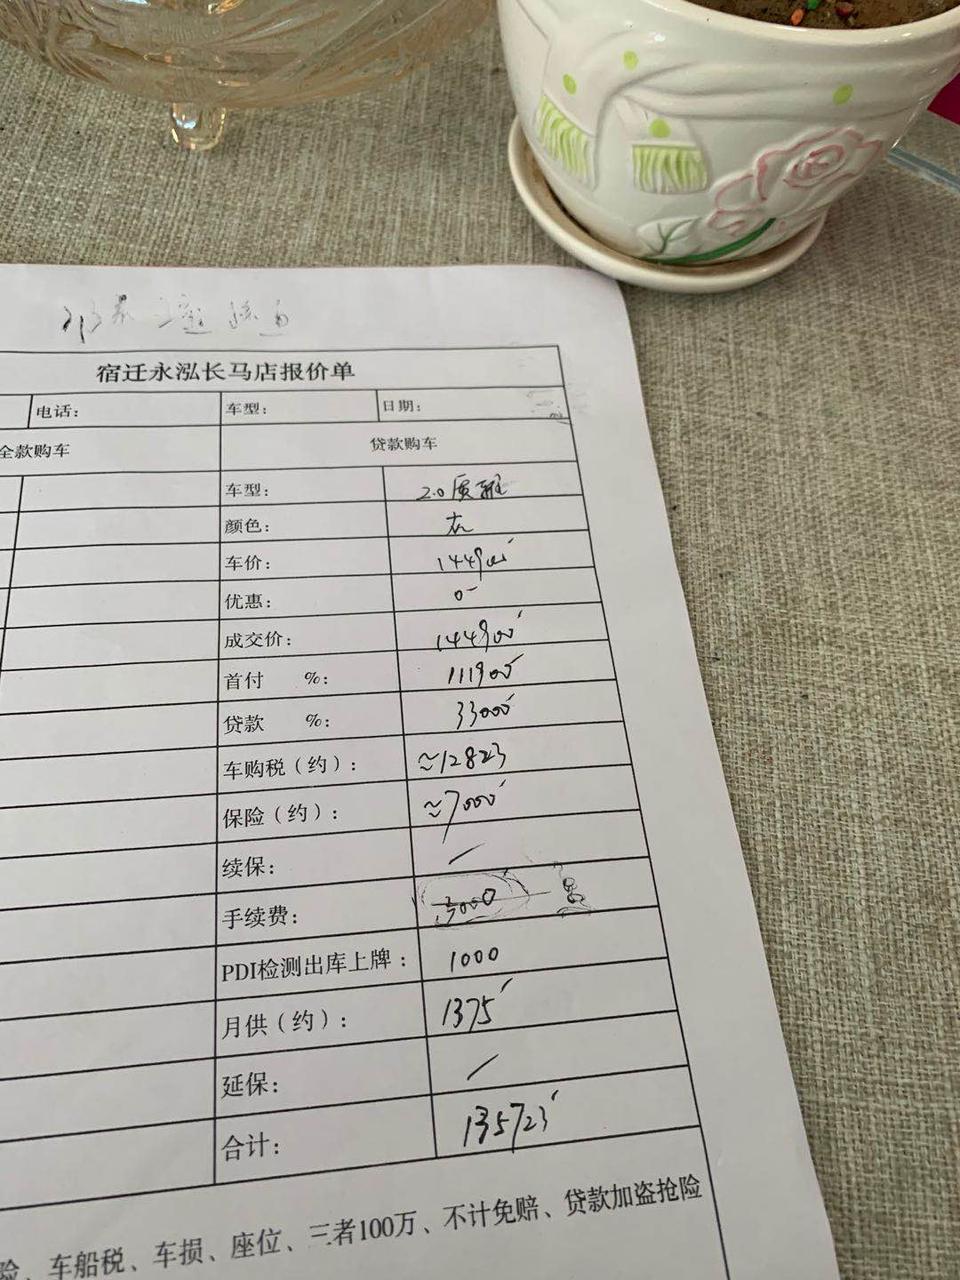 宿迁永泓长马店报价单
电话： 车型： 日期：
全款购车 贷款购车
车型： 2.0质雅
颜色： 红
车价： 144900
优惠： 0
成交价： 144900
首付 %： 111900
贷款 %： 33000
车购税（约）： ≈12823
保险（约）： ≈7000
续保： /
手续费： 3000
PDI检测出库上牌： 1000
月供（约）： 1375
延保： /
合计： 135723
险、车船税、车损、座位、三者100万、不计免赔、贷款加盗抢险